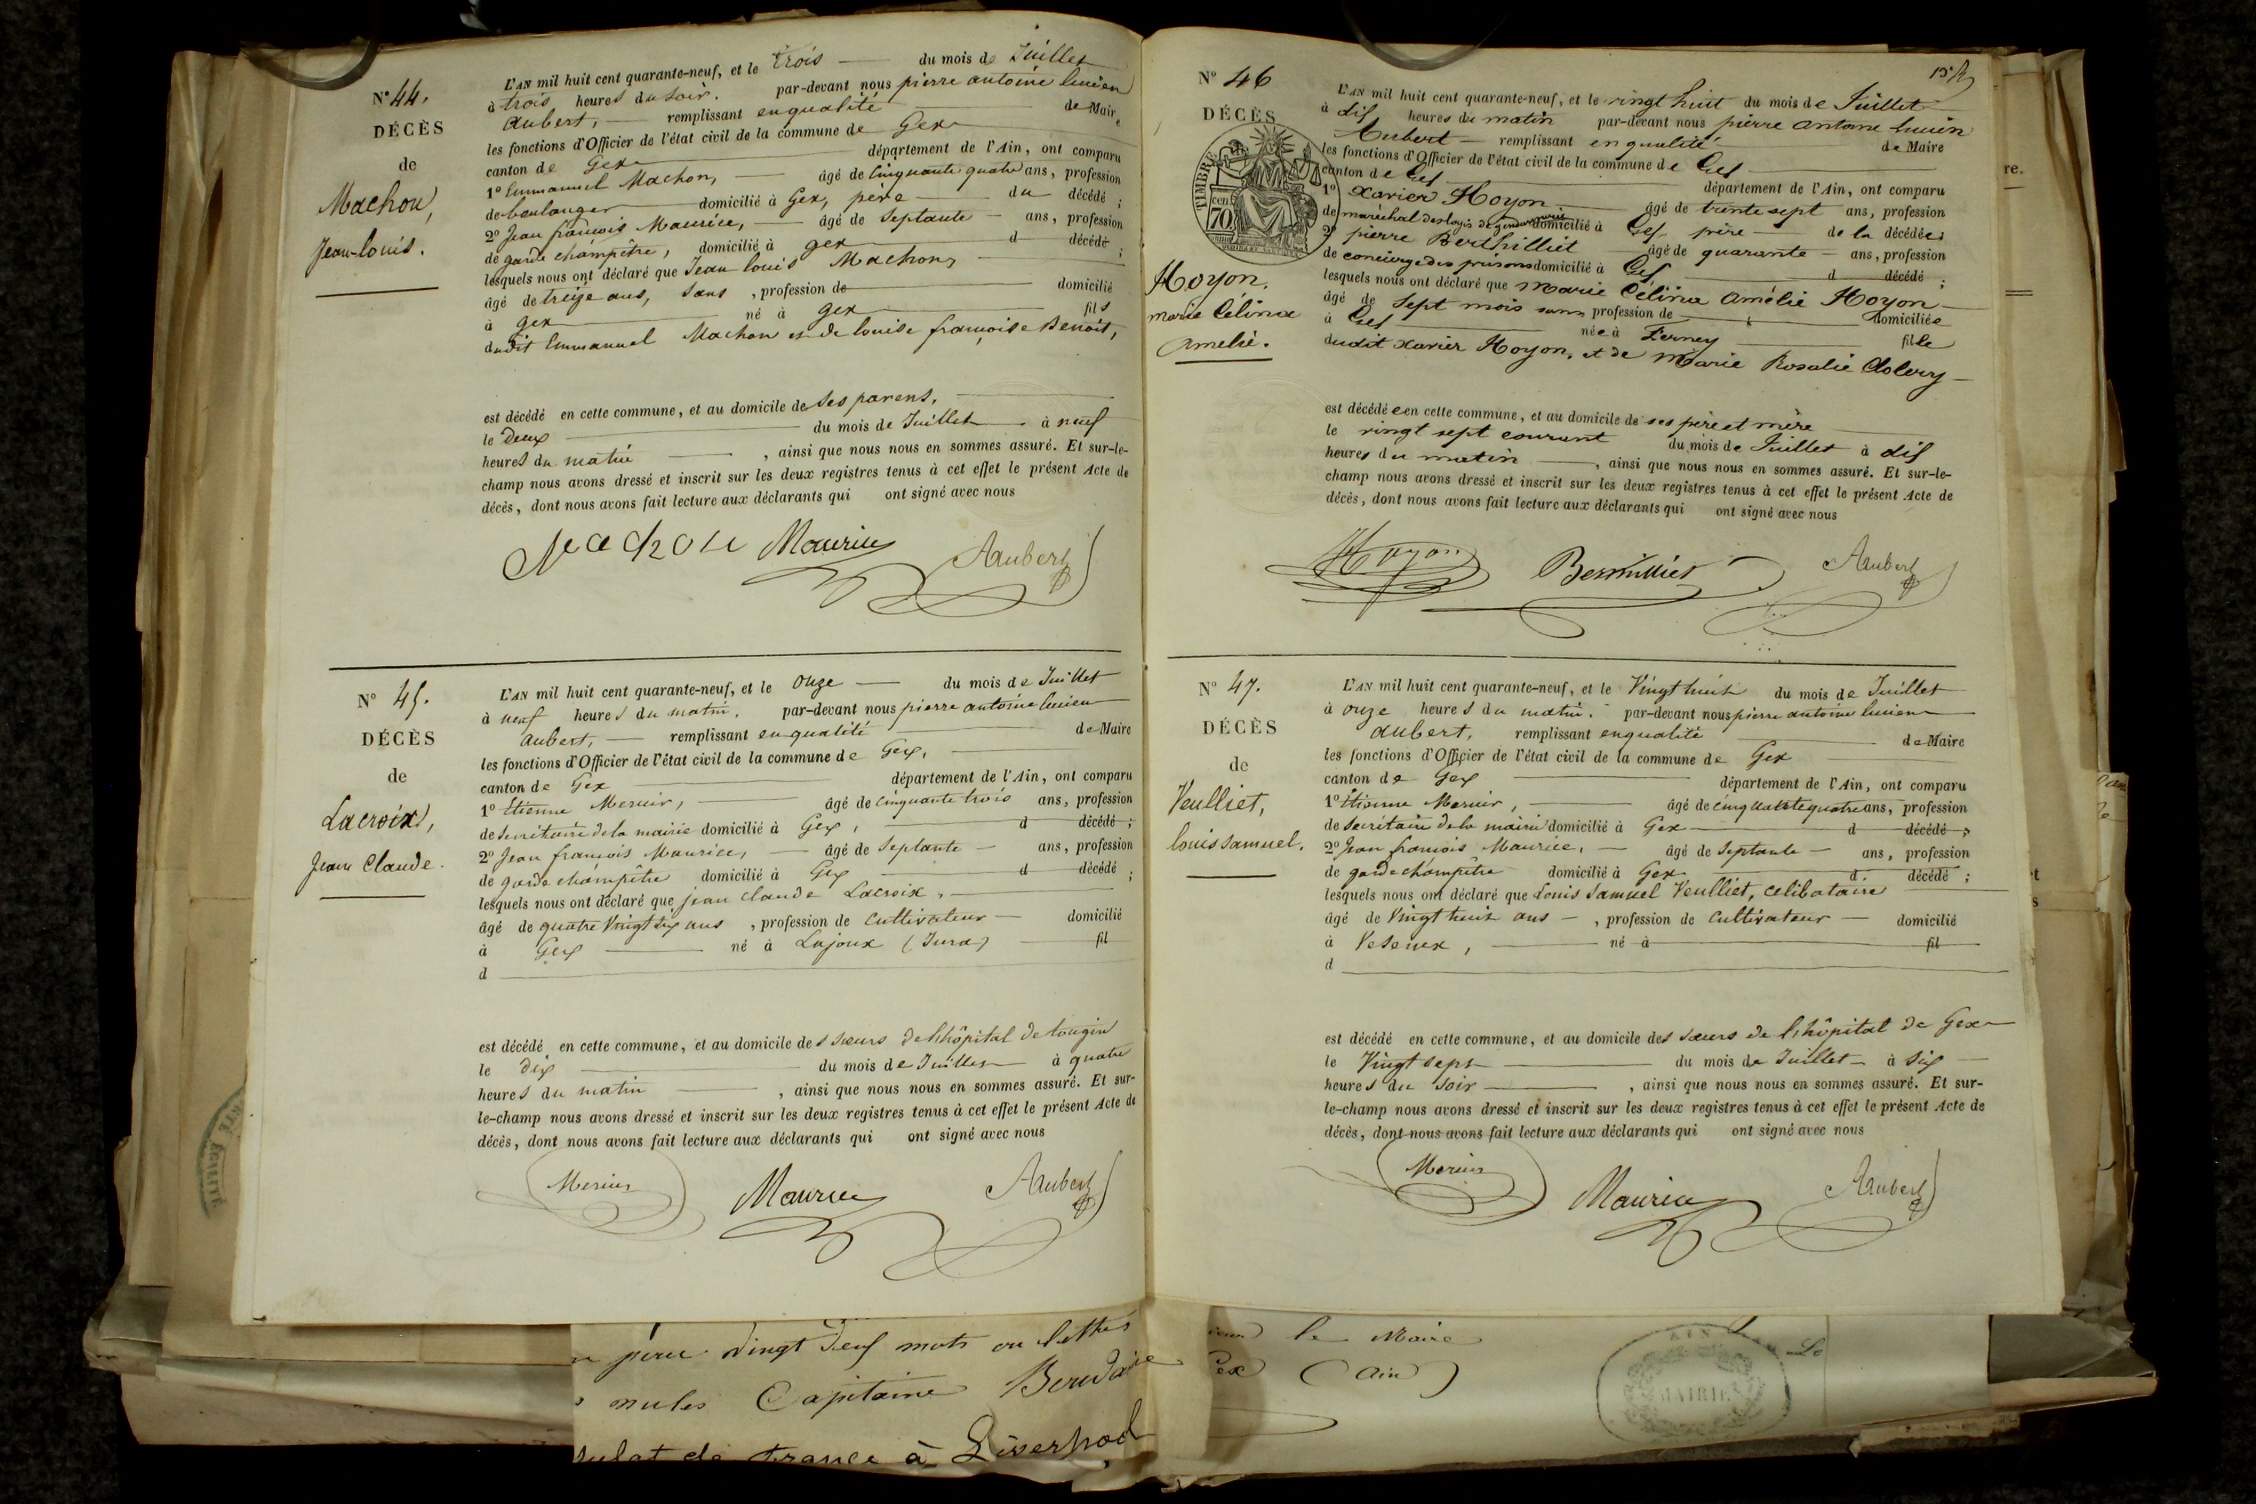 N° 44.
DÉCÈS
de
Machon,
Jean-louis.
L'AN mil huit cent quarante-neuf, et le trois du mois de Juillet
à trois heures du soir. par-devant nous pierre antoine lucien
aubert, remplissant en qualité de Maire
les fonctions d'Officier de l'état civil de la commune de Gex
canton de Gex département de l'Ain, ont comparu
1° Emmanuel Machon, âgé de Cinquante quatre ans, profession
de boulanger domicilié à Gex, père du décédé ;
2° Jean françois Maurice, âgé de Septante ans, profession
de garde champêtre, domicilié à gex d décédé ;
lesquels nous ont déclaré que Jean louis Machon,
âgé de treize ans, sans , profession de domicilié
à gex né à gex fils
dudit Emmanuel Machon et de louise françoise Benoit,
est décédé en cette commune, et au domicile de ses parens,
le Deux du mois de Juillet à neuf
heures du matin , ainsi que nous nous en sommes assuré. Et sur-le-
champ nous avons dressé et inscrit sur les deux registres tenus à cet effet le présent Acte de
décès, dont nous avons fait lecture aux déclarants qui ont signé avec nous
Machon Maurice Aubert
N° 45.
DÉCÈS
de
Lacroix,
Jean Claude.
L'AN mil huit cent quarante-neuf, et le onze du mois de Juillet
à neuf heures du matin. par-devant nous pierre antoine lucien
aubert, remplissant en qualité de Maire
les fonctions d'Officier de l'état civil de la commune de Gex,
canton de Gex département de l'Ain, ont comparu
1° Etienne Mernir, âgé de cinquante trois ans, profession
de Secrétaire de la mairie domicilié à Gex, d décédé ;
2° Jean françois Maurice, âgé de Septante ans, profession
de garde champêtre domicilié à Gex d décédé ;
lesquels nous ont déclaré que jean claude Lacroix,
âgé de quatre Vingt six ans , profession de Cultivateur domicilié
à Gex né à Lajoux (Jura) fil
d
est décédé en cette commune, et au domicile des sœurs de l'hôpital de tougin
le dix du mois de Juillet à quatre
heures du matin , ainsi que nous nous en sommes assuré. Et sur-
le-champ nous avons dressé et inscrit sur les deux registres tenus à cet effet le présent Acte de
décès, dont nous avons fait lecture aux déclarants qui ont signé avec nous
Maurice Aubert
15
N° 46
DÉCÈS
TIMBRE
cen
70
Hoyon.
marie Célina
Amélie.
L'AN mil huit cent quarante-neuf, et le vingt huit du mois de Juillet
à dix heures du matin par-devant nous pierre antoine lucien
Aubert remplissant en qualité de Maire
les fonctions d'Officier de l'état civil de la commune de Gex
canton de Gex département de l'Ain, ont comparu
1° Xavier Hoyon âgé de trente sept ans, profession
de maréchal des logis de gendarmerie domicilié à Gex père de la décédée ;
2° pierre Berthilliet âgé de quarante ans, profession
de concierge des prisons domicilié à Gex d décédé ;
lesquels nous ont déclaré que Marie Célina Amélie Hoyon
âgé de Sept mois sans profession de domiciliée
à Gex née à Ferney fille
dudit Xavier Hoyon, et de Marie Rosalie
est décédée en cette commune, et au domicile de ses père et mère
le vingt sept courant du mois de Juillet à dix
heures du matin , ainsi que nous nous en sommes assuré. Et sur-le-
champ nous avons dressé et inscrit sur les deux registres tenus à cet effet le présent Acte de
décès, dont nous avons fait lecture aux déclarants qui ont signé avec nous
Hoyon Berthilliet Aubert
N° 47.
DÉCÈS
de
Veulliet,
louis samuel.
L'AN mil huit cent quarante-neuf, et le Vingt huit du mois de Juillet
à onze heures du matin. par-devant nous pierre antoine lucien
aubert, remplissant en qualité de Maire
les fonctions d'Officier de l'état civil de la commune de Gex
canton de Gex département de l'Ain, ont comparu
1° Etienne Mernir, âgé de cinquante quatre ans, profession
de Secrétaire de la mairie domicilié à Gex d décédé ;
2° Jean françois Maurice, âgé de Septante ans, profession
de garde champêtre domicilié à Gex d décédé ;
lesquels nous ont déclaré que Louis Samuel Veulliet, célibataire
âgé de Vingt huit ans , profession de Cultivateur domicilié
à Vesenex, né à fil
d
est décédé en cette commune, et au domicile des sœurs de l'hôpital de Gex
le Vingt sept du mois de Juillet à six
heures du soir , ainsi que nous nous en sommes assuré. Et sur-
le-champ nous avons dressé et inscrit sur les deux registres tenus à cet effet le présent Acte de
décès, dont nous avons fait lecture aux déclarants qui ont signé avec nous
Maurice Aubert
re.
vingt neuf mots ou lettres
nules Capitaine
de France à Liverpool
le Maire
Gex (Ain)
AIN
MAIRIE
Le